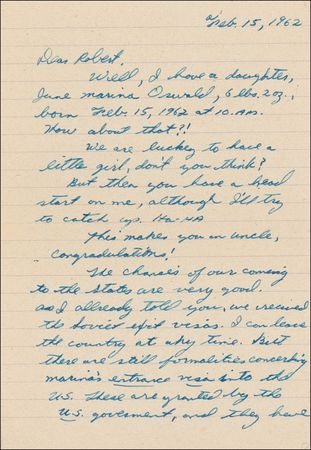 Feb. 15, 1962
Dear Robert,
Well, I have a daughter,
June Marina Oswald, 6 lbs. 2 oz.,
born Feb. 15, 1962 at 10. A.M.
How about that?!
We are luckey to have a
little girl, don't you think?
But then you have a head
start on me, although I'll try
to catch up. Ha-Ha
This makes you an uncle,
Congradulations!
The chances of our coming
to the States are very good.
as I allready told you, we recived
the Soviet exit visas. I can leave
the country at any time. But
there are still formalities concerning
Marina's entrance visa into the
U.S. These are granted by the
U.S. goverment, and they have